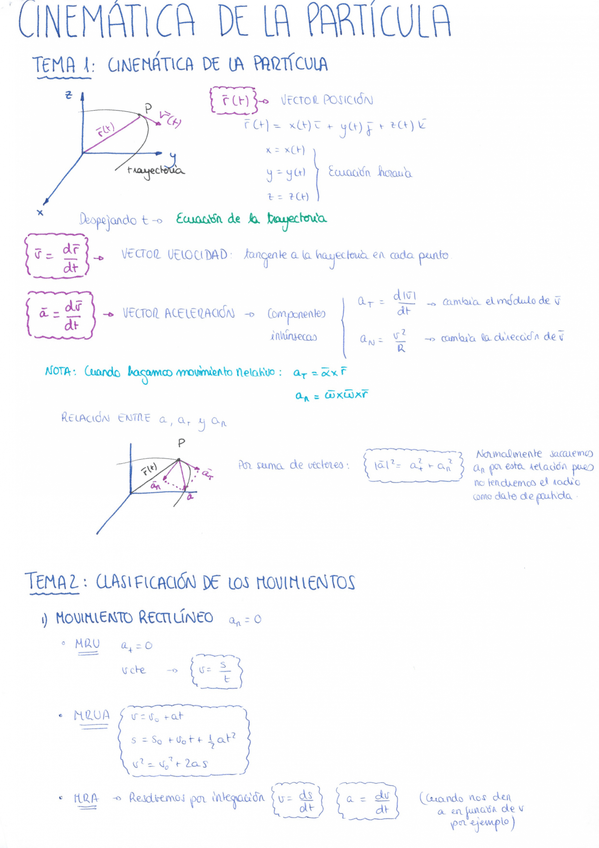 CINEMÁTICA DE LA PARTÍCULA
TEMA 1: CINEMÁTICA DE LA PARTÍCULA
z
P
v̄(t)
r̄(t)
y
trayectoria
x
r̄(t) → VECTOR POSICIÓN
r̄(t) = x(t) ī + y(t) j̄ + z(t) k̄
x = x(t)
y = y(t) } Ecuación horaria
z = z(t)
Despejando t → Ecuación de la trayectoria
v̄ = dr̄/dt → VECTOR VELOCIDAD: tangente a la trayectoria en cada punto
ā = dv̄/dt → VECTOR ACELERACIÓN → Componentes intrínsecas
aT = d|v̄|/dt → cambia el módulo de v̄
aN = v²/R → cambia la dirección de v̄
NOTA: Cuando hagamos movimiento relativo: aT = ᾱ x r̄
an = ω̄ x ω̄ x r̄
RELACIÓN ENTRE a, aT y an
P
r̄(t)
āT
ān
ā
Por suma de vectores: |ā|² = aT² + an²
Normalmente sacaremos
an por esta relación pues
no tendremos el radio
como dato de partida.
TEMA 2: CLASIFICACIÓN DE LOS MOVIMIENTOS
1) MOVIMIENTO RECTILÍNEO an = 0
• MRU at = 0
v cte → v = s/t
• MRUA v = v₀ + at
s = s₀ + v₀t + ½ at²
v² = v₀² + 2as
• MRA → Resolvemos por integración v = ds/dt a = dv/dt (Cuando nos den
a en función de v
por ejemplo)